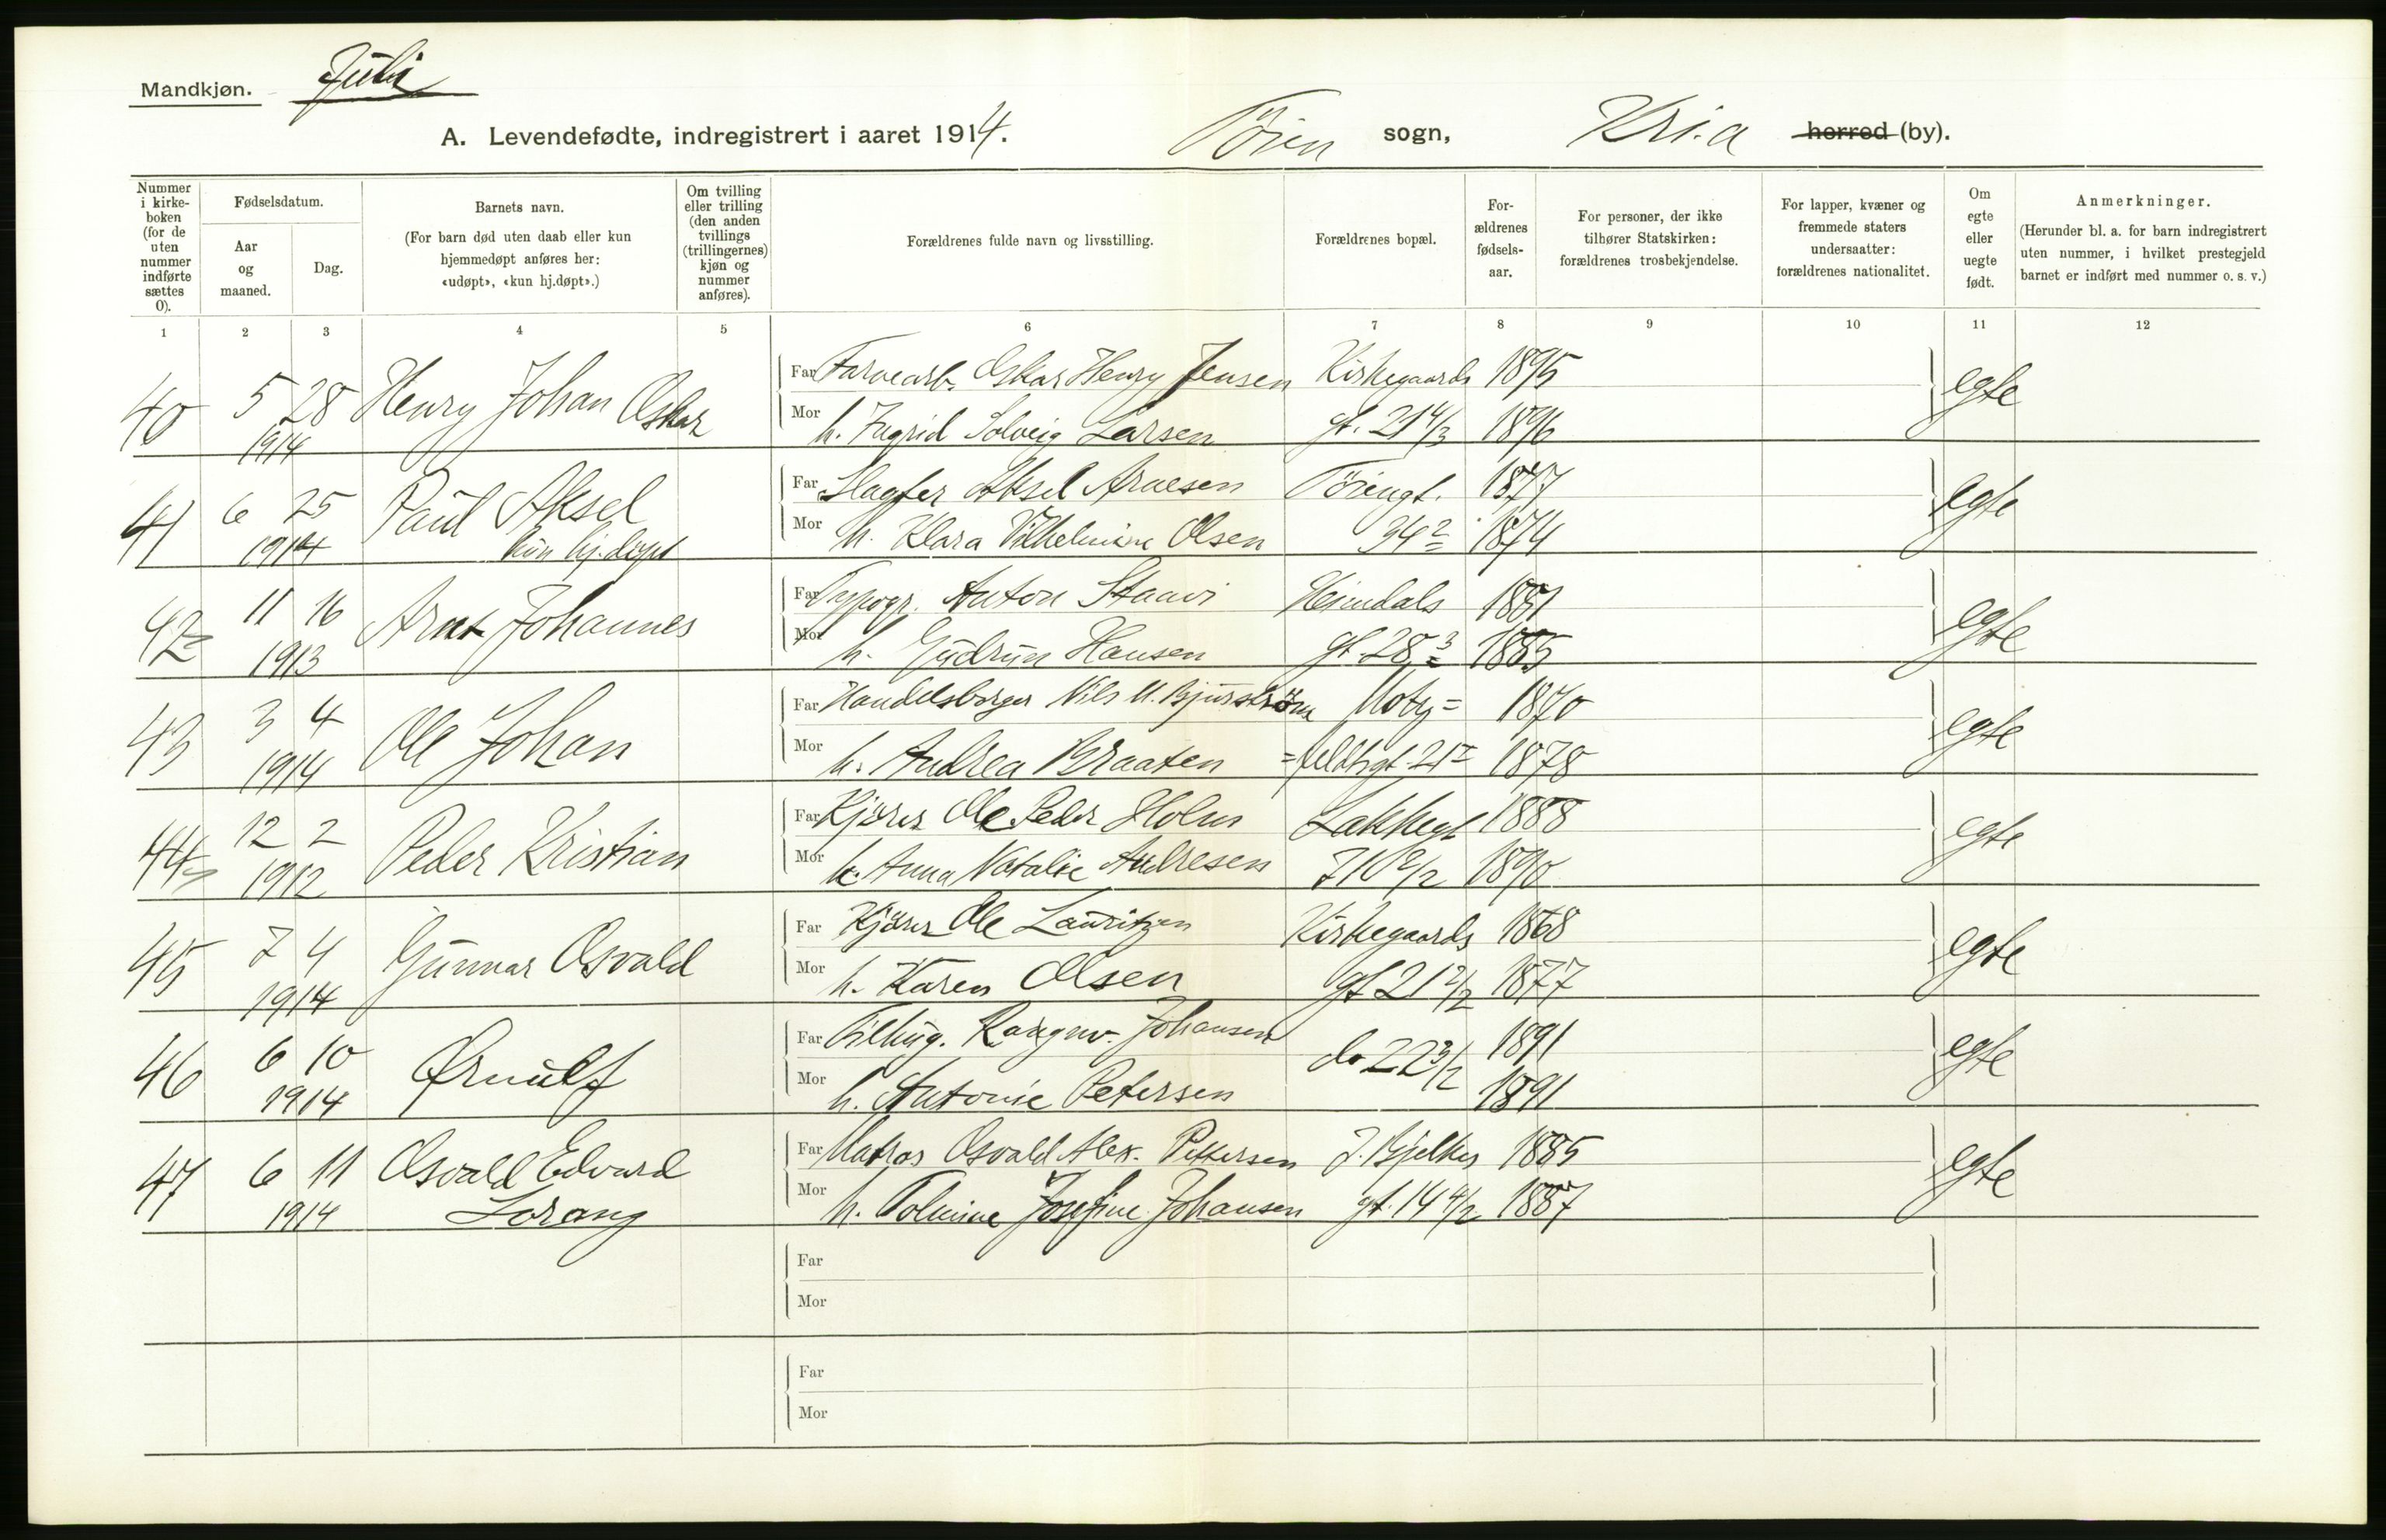 Mandkjøn. Juli
A. Levendefødte, indregistrert i aaret 1914. Töien sogn, Kria herred (by).
Nummer i kirkeboken (for de uten nummer indførte sættes 0).
Fødselsdatum.
Aar og maaned.
Dag.
Barnets navn.
(For barn død uten daab eller kun hjemmedøpt anføres her: «udøpt», «kun hj.døpt».)
Om tvilling eller trilling (den anden tvillings (trillingernes) kjøn og nummer anføres).
Forældrenes fulde navn og livsstilling.
Forældrenes bopæl.
Forældrenes fødselsaar.
For personer, der ikke tilhører Statskirken: forældrenes trosbekjendelse.
For lapper, kvæner og fremmede staters undersaatter: forældrenes nationalitet.
Om egte eller uegte født.
Anmerkninger.
(Herunder bl. a. for barn indregistrert uten nummer, i hvilket prestegjeld barnet er indført med nummer o. s. v.)
1 2 3 4 5 6 7 8 9 10 11 12
40 5 28 Henry Johan Oskar Far Farvearb. Oskar Henry Jensen Kirkegaards 1895 egte
1914 Mor h. Ingrid Solveig Larsen gt. 21 4/3 1896
41 6 25 Paul Aksel Far Slagter Aksel Arnesen Töiengt. 1877 egte
1914 kun hj.døpt Mor h. Klara Vilhelmine Olsen 34 2 1874
42 11 16 Arnt Johannes Far Typogr. Anton Staavi Heimdals 1881 egte
1913 Mor h. Gudrun Hansen gt. 28 3 1885
43 3 4 Ole Johan Far Handelsborger Nils M. Bjurström Motz= 1870 egte
1914 Mor h. Andrea Braaten =feldtsgt. 21 1878
44 12 2 Peder Kristian Far Kjörer Ole Peder Holm Lakkegt 1888 egte
1912 Mor h. Anna Natalie Andresen 71 0/2 1890
45 7 4 Gunnar Osvald Far Kjörer Ole Lauritzen Kirkegaards 1868 egte
1914 Mor h. Karen Olsen gt 21 2/2 1877
46 6 10 Ørnulf Far Filhug. Rangnv. Johansen do 22 3/2 1891 egte
1914 Mor h. Antonie Petersen 1891
47 6 11 Osvald Edvard Far Matros Osvald Alex. Pettersen J. Bjelkes 1885 egte
1914 Lorang Mor h. Tolmine Josefine Johansen gt. 14 4/2 1887
Far
Mor
Far
Mor